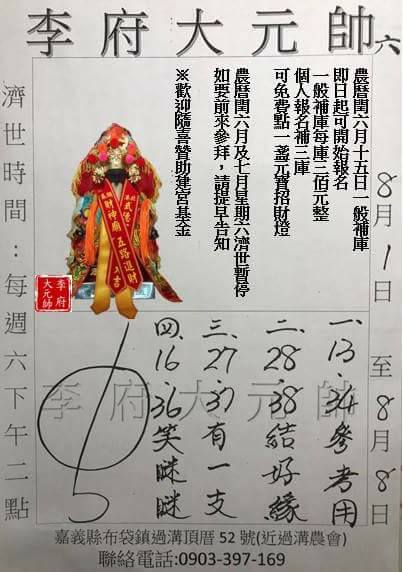 李府大元帥 六
農曆閏六月十五日一般補庫
即日起可開始報名
一般補庫每庫三佰元整
個人報名補三庫
可免費點一盞元寶招財燈
農曆閏六月及七月星期六濟世暫停
如要前來參拜，請提早告知
※歡迎隨喜贊助建宮基金
8月1日 至 8月8日
濟世時間：每週六下午二點
財神廟
五路進財
李府
大元帥
李府大元帥
一、13.34參考用
二、28.38結好緣
三、27.37有一支
四、16.36笑瞇瞇
嘉義縣布袋鎮過溝頂厝 52 號(近過溝農會)
聯絡電話:0903-397-169